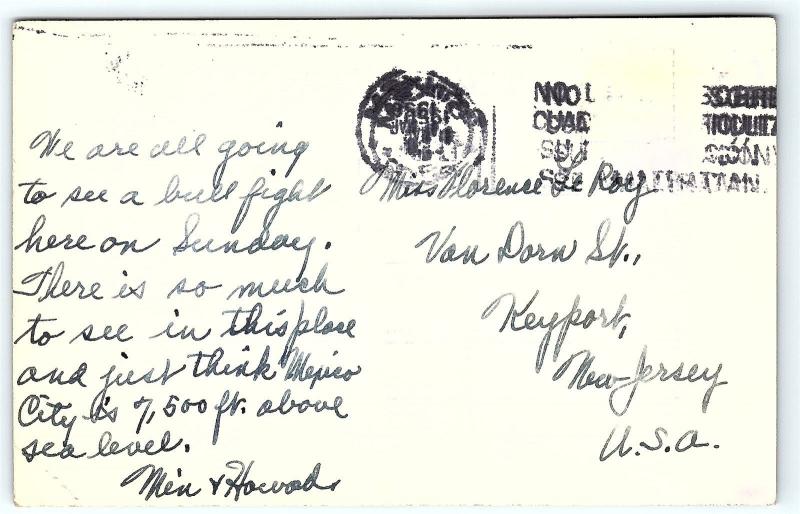 We are all going
to see a bull fight
here on Sunday.
There is so much
to see in this place
and just think Mexico
City is 7,500 ft. above
sea level.
Min &
Miss Florence
Van Dorn St.,
Keyport,
New Jersey
U.S.A.